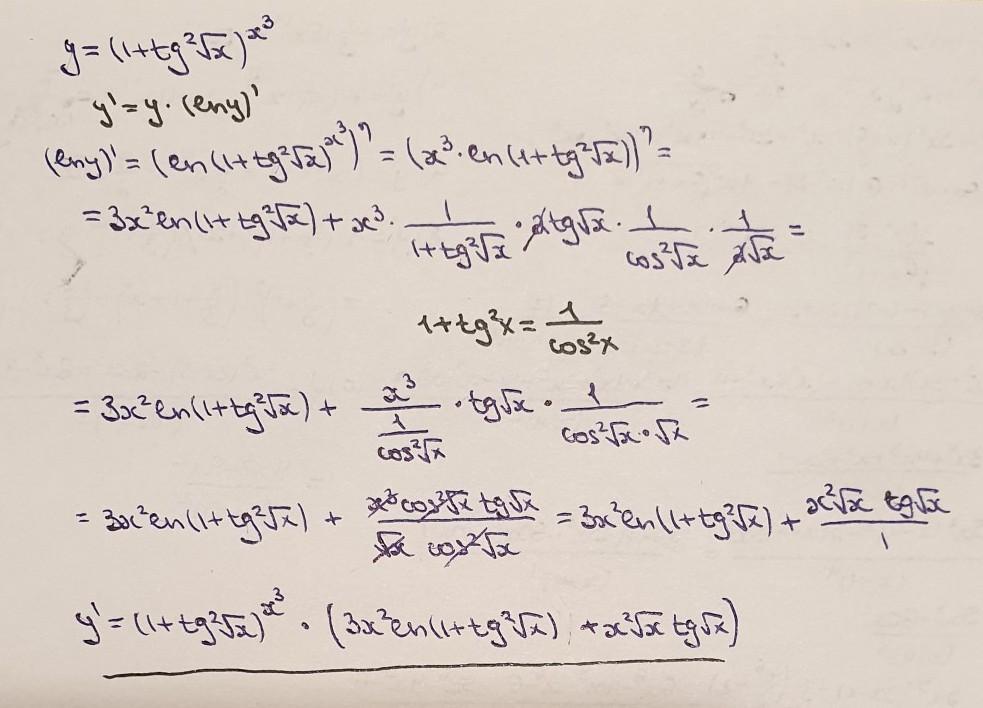 y = (1+tg²√x)^x³
y' = y · (ln y)'
(ln y)' = (ln(1+tg²√x)^x³)' = (x³·ln(1+tg²√x))' =
= 3x² ln(1+tg²√x) + x³ · 1/(1+tg²√x) · 2tg√x · 1/(cos²√x) · 1/(2√x) =
1+tg²x = 1/(cos²x)
= 3x² ln(1+tg²√x) + x³/(1/(cos²√x)) · tg√x · 1/(cos²√x · √x) =
= 3x² ln(1+tg²√x) + (x³ cos²√x tg√x)/(√x cos²√x) = 3x² ln(1+tg²√x) + (x²√x tg√x)/1
y' = (1+tg²√x)^x³ · (3x² ln(1+tg²√x) + x²√x tg√x)